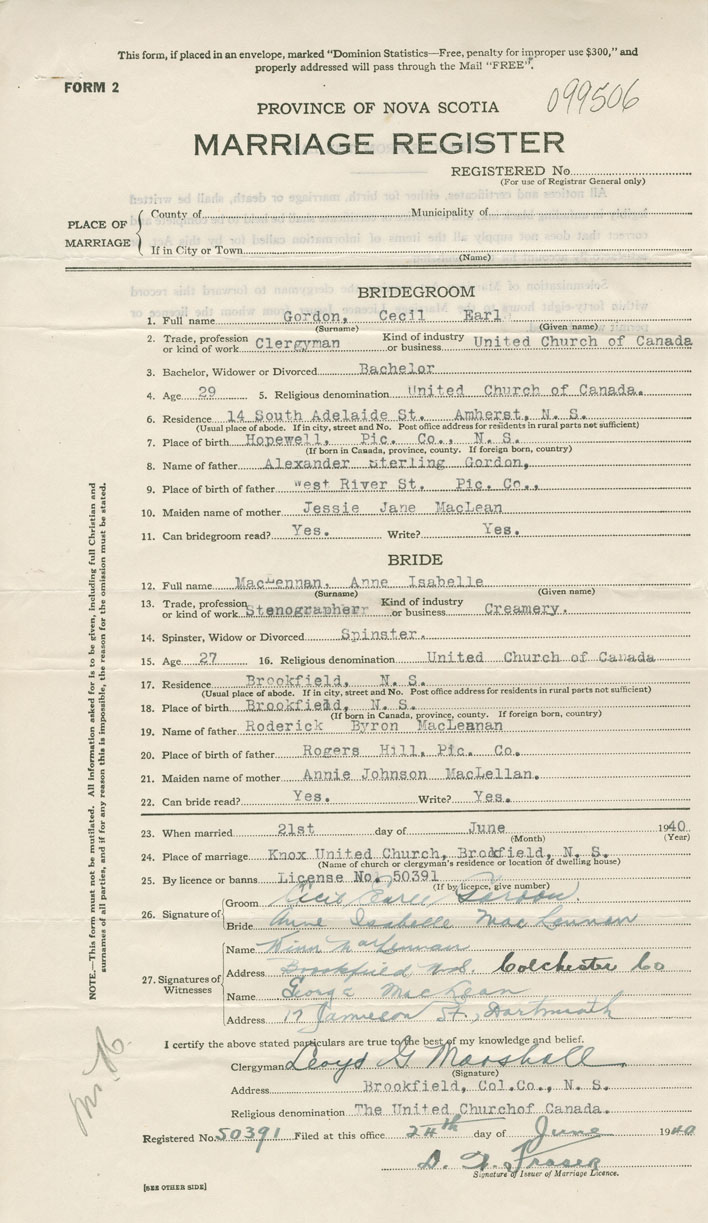 This form, if placed in an envelope, marked "Dominion Statistics—Free, penalty for improper use $300," and
properly addressed will pass through the Mail "FREE".
FORM 2
099506
PROVINCE OF NOVA SCOTIA
MARRIAGE REGISTER
REGISTERED No.
(For use of Registrar General only)
PLACE OF MARRIAGE
County of Municipality of
If in City or Town
(Name)
BRIDEGROOM
1. Full name Gordon, Cecil Earl
(Surname) (Given name)
2. Trade, profession or kind of work Clergyman Kind of industry or business United Church of Canada
3. Bachelor, Widower or Divorced Bachelor
4. Age 29 5. Religious denomination United Church of Canada.
6. Residence 14 South Adelaide St. Amherst, N. S.
(Usual place of abode. If in city, street and No. Post office address for residents in rural parts not sufficient)
7. Place of birth Hopewell, Pic. Co., N. S.
(If born in Canada, province, county. If foreign born, country)
8. Name of father Alexander Sterling Gordon,
9. Place of birth of father West River St. Pic. Co.,
10. Maiden name of mother Jessie Jane MacLean
11. Can bridegroom read? Yes. Write? Yes.
BRIDE
12. Full name MacLennan, Anne Isabelle
(Surname) (Given name)
13. Trade, profession or kind of work Stenographerr Kind of industry or business Creamery.
14. Spinster, Widow or Divorced Spinster.
15. Age 27 16. Religious denomination United Church of Canada
17. Residence Brookfield, N. S.
(Usual place of abode. If in city, street and No. Post office address for residents in rural parts not sufficient)
18. Place of birth Brookfield, N. S.
(If born in Canada, province, county. If foreign born, country)
19. Name of father Roderick Byron MacLennan
20. Place of birth of father Rogers Hill, Pic. Co.
21. Maiden name of mother Annie Johnson MacLellan.
22. Can bride read? Yes. Write? Yes.
23. When married 21st day of June 1940
(Month) (Year)
24. Place of marriage Knox United Church, Brookfield, N. S.
(Name of church or clergyman's residence or location of dwelling house)
25. By licence or banns License No. 50391
(If by licence, give number)
26. Signature of
Groom Cecil Earl Gordon.
Bride Anne Isabelle MacLennan
27. Signatures of Witnesses
Name MacLennan
Address Brookfield N.S. Colchester Co
Name George MacLean
Address 17 Jamieson St., Dartmouth
I certify the above stated particulars are true to the best of my knowledge and belief.
Clergyman Lloyd G Marshall
(Signature)
Address Brookfield, Col.Co., N. S.
Religious denomination The United Churchof Canada.
Registered No. 50391 Filed at this office 24th day of June 1940
D. Fraser
Signature of Issuer of Marriage Licence.
[SEE OTHER SIDE]
NOTE.—This form must not be mutilated. All information asked for is to be given, including full Christian and
surnames of all parties, and if for any reason this is impossible, the reason for the omission must be stated.